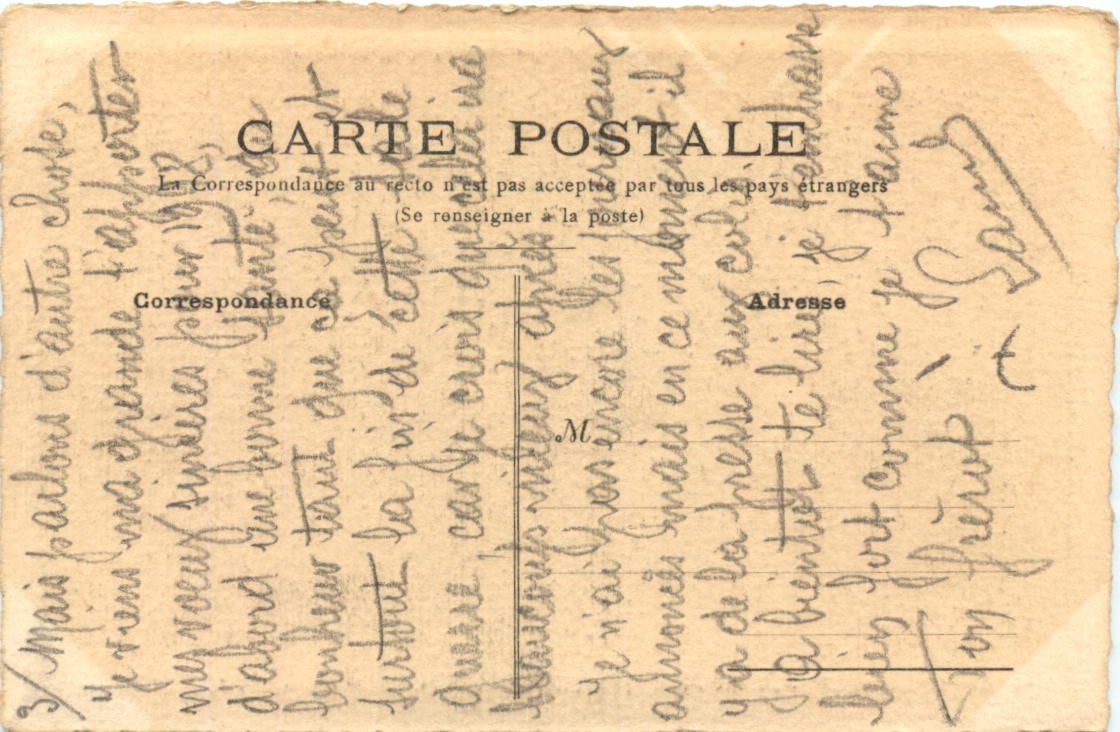 CARTE POSTALE
La Correspondance au recto n'est pas acceptée par tous les pays étrangers
(Se renseigner à la poste)
Correspondance
Adresse
M
3/ Mais parlons d'autre chose,
je viens ma grande t'apporter
mes voeux sincères pour 1918,
d'abord une bonne santé, du
bonheur tant que ce peut et
surtout la fin de cette sale
guerre car je crois que celle ira
beaucoup mieux après
Je n'ai pas encore les journaux
annoncés mais en ce moment il
y a de la presse aux colis
A bientôt te lire, je t'embrasse
bien fort comme je t'aime
Ton frérot